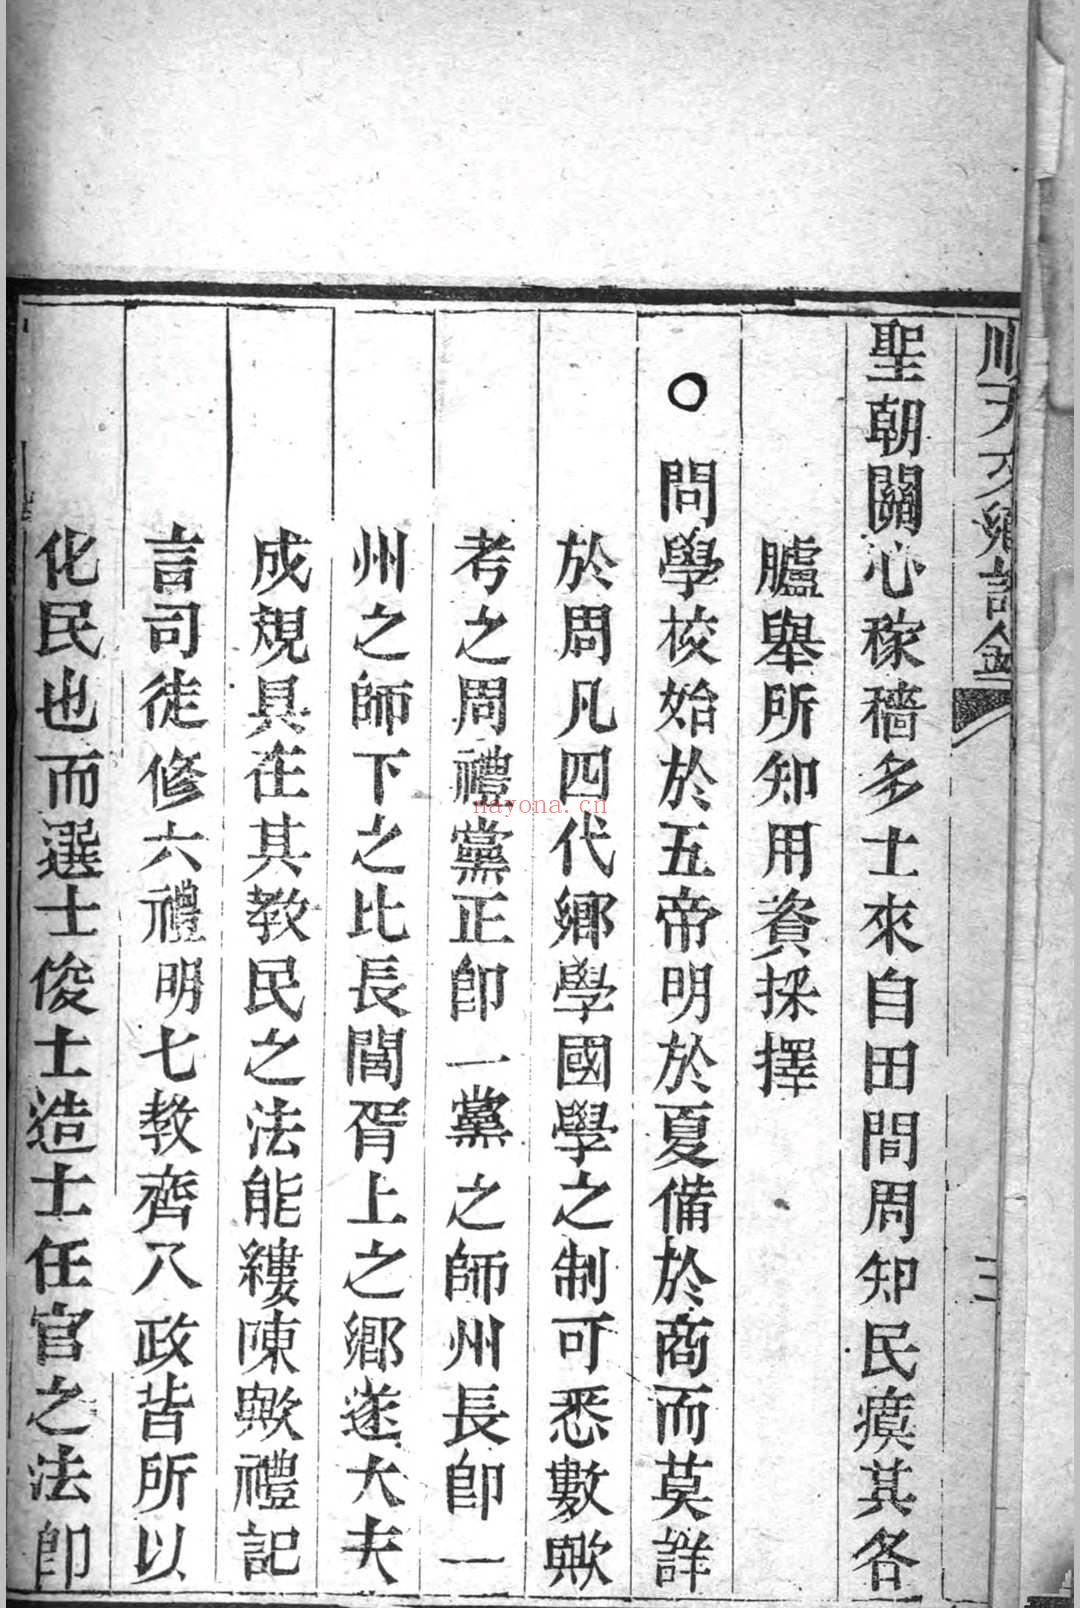 順天文鄉試錄
三
聖朝關心稼穡多士來自田間周知民瘼其各
臚舉所知用資採擇
○問學校始於五帝明於夏備於商而莫詳
於周凡四代鄉學國學之制可悉數歟
考之周禮黨正即一黨之師州長即一
州之師下之比長閭胥上之鄉遂大夫
成規具在其教民之法能縷陳歟禮記
言司徒修六禮明七教齊八政皆所以
化民也而選士俊士造士任官之法即
nayona.cn